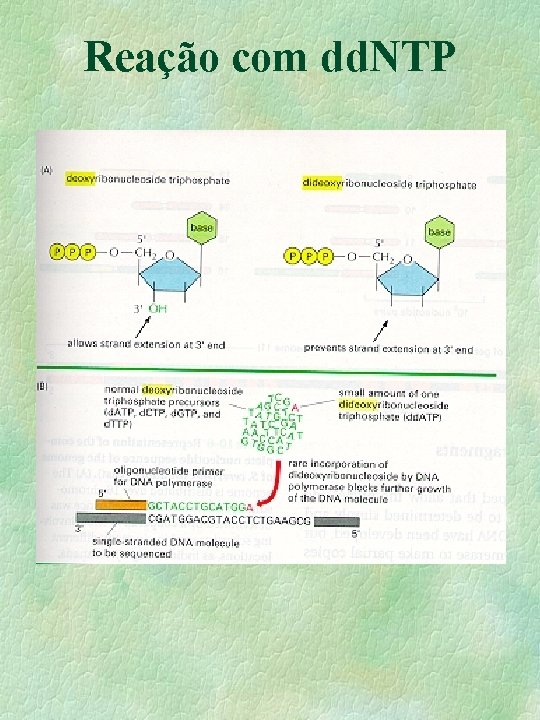 Reação com dd.NTP
(A)
deoxyribonucleoside triphosphate
dideoxyribonucleoside triphosphate
base
base
5'
5'
P P P O CH₂ O
P P P O CH₂ O
3' OH
allows strand extension at 3' end
prevents strand extension at 3' end
(B)
normal deoxyribonucleoside
triphosphate precursors
(dATP, dCTP, dGTP, and
dTTP)
small amount of one
dideoxyribonucleoside
triphosphate (ddATP)
oligonucleotide primer
for DNA polymerase
rare incorporation of
dideoxyribonucleoside by DNA
polymerase blocks further growth
of the DNA molecule
5'
GCTACCTGCATGGA
CGATGGACGTACCTCTGAAGCG
3'
5'
single-stranded DNA molecule
to be sequenced